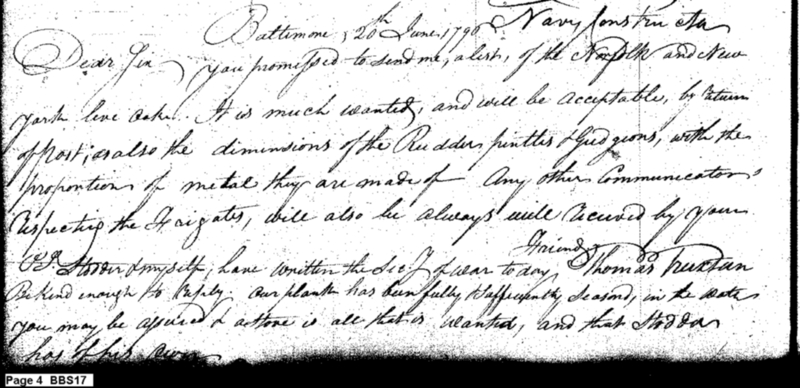 Navy Constructor
Baltimore, 20th June 1796
Dear Sir
you promised to send me, a list, of the Norfolk and New
york live oak. It is much wanted, and will be acceptable, by return
of Post, as also the dimensions of the Rudder pintles & Gudgions, with the
proportion of metal they are made of Any other Communications
respecting the Frigates, will also be always well received by your
Friend
PS. Stodder & myself, have written the Secy of war today, Thomas Truxtun
Be kind enough to reply. our plank has been fully & sufficiently Seasond, in the
you may be assured & a Stone is all that is wanted, and that Stodder
has of his own
Page 4 BBS17